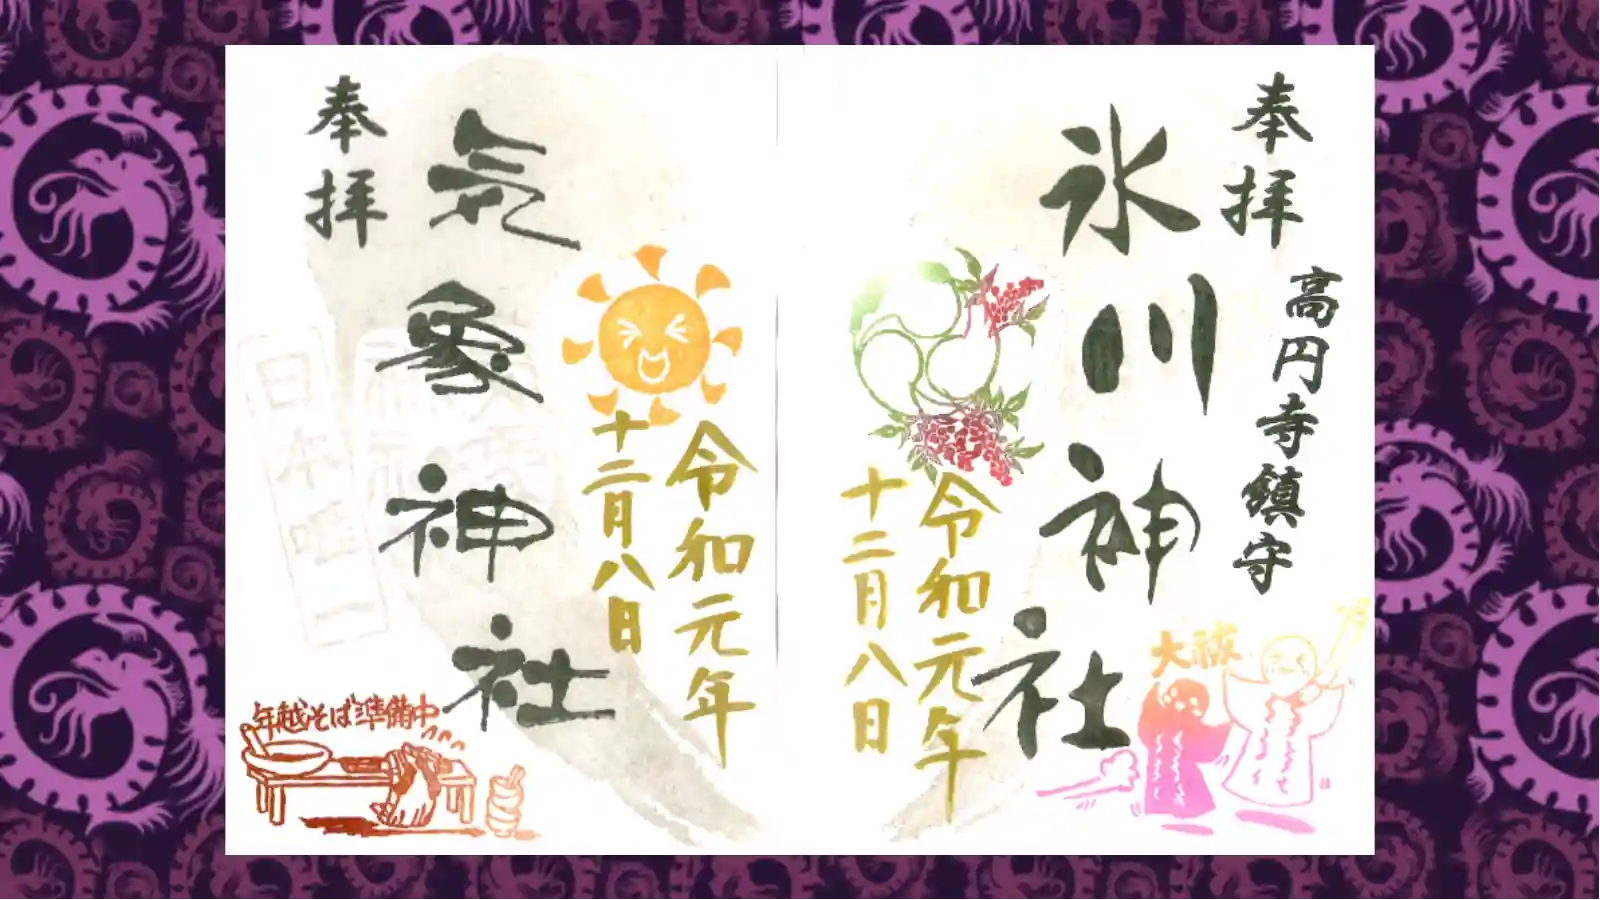 奉拝
高円寺鎮守
氷川神社
令和元年
十二月八日
大祓
奉拝
気象神社
令和元年
十二月八日
日本唯一
年越そば準備中